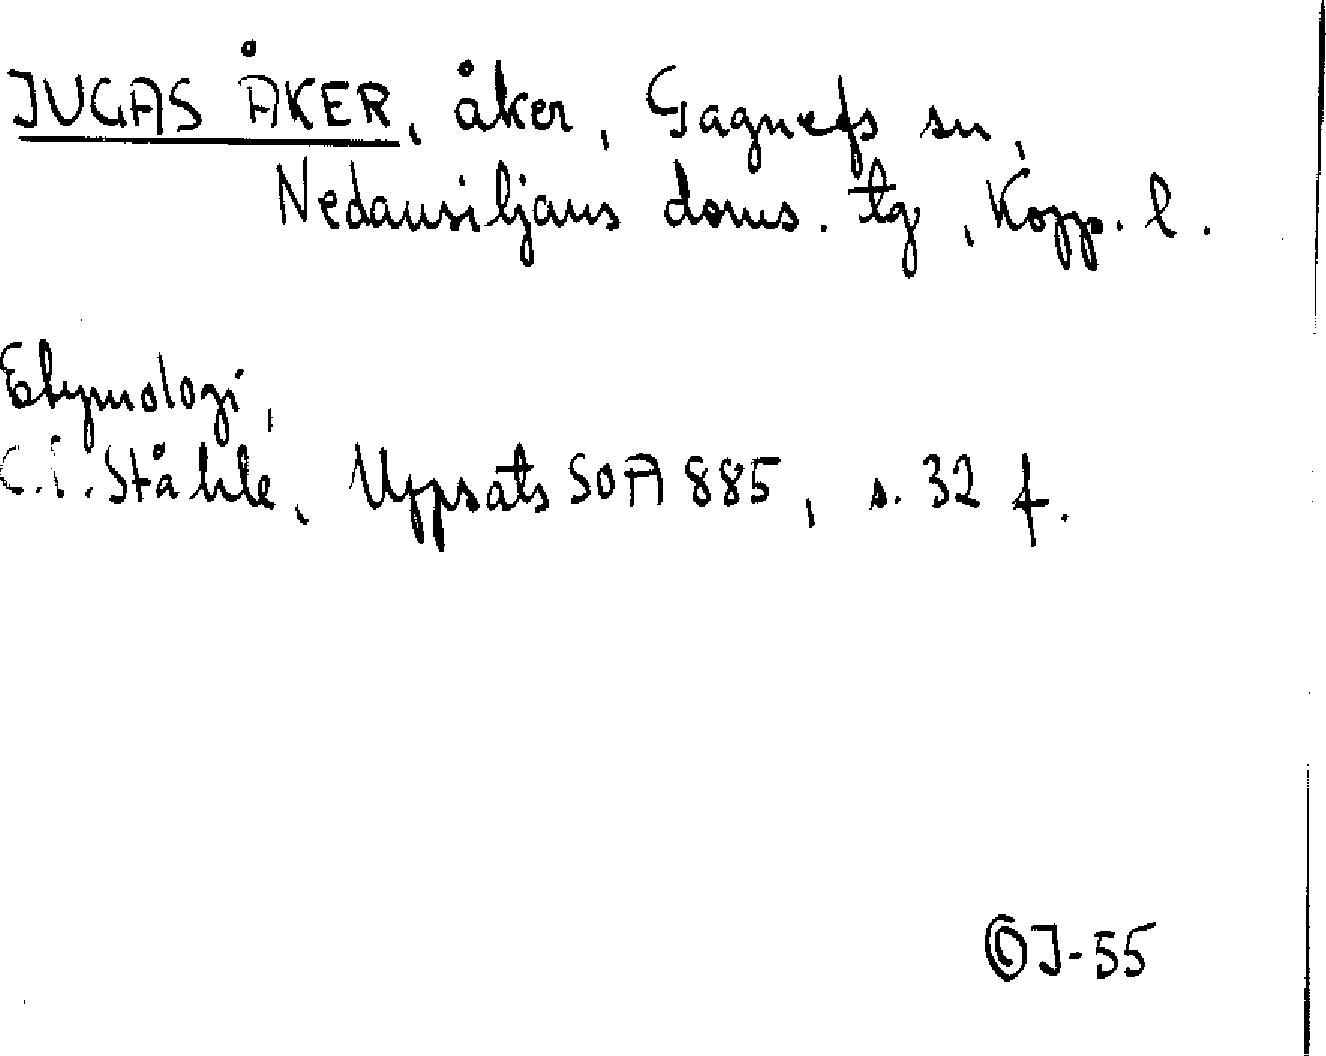 JUGAS ÅKER, åker, Gagnefs sn,
Nedansiljans doms. tg, Kopp. l.
Etymologi,
C.I. Ståhle, Uppsats SOA 885, s. 32 f.
ÖJ-55